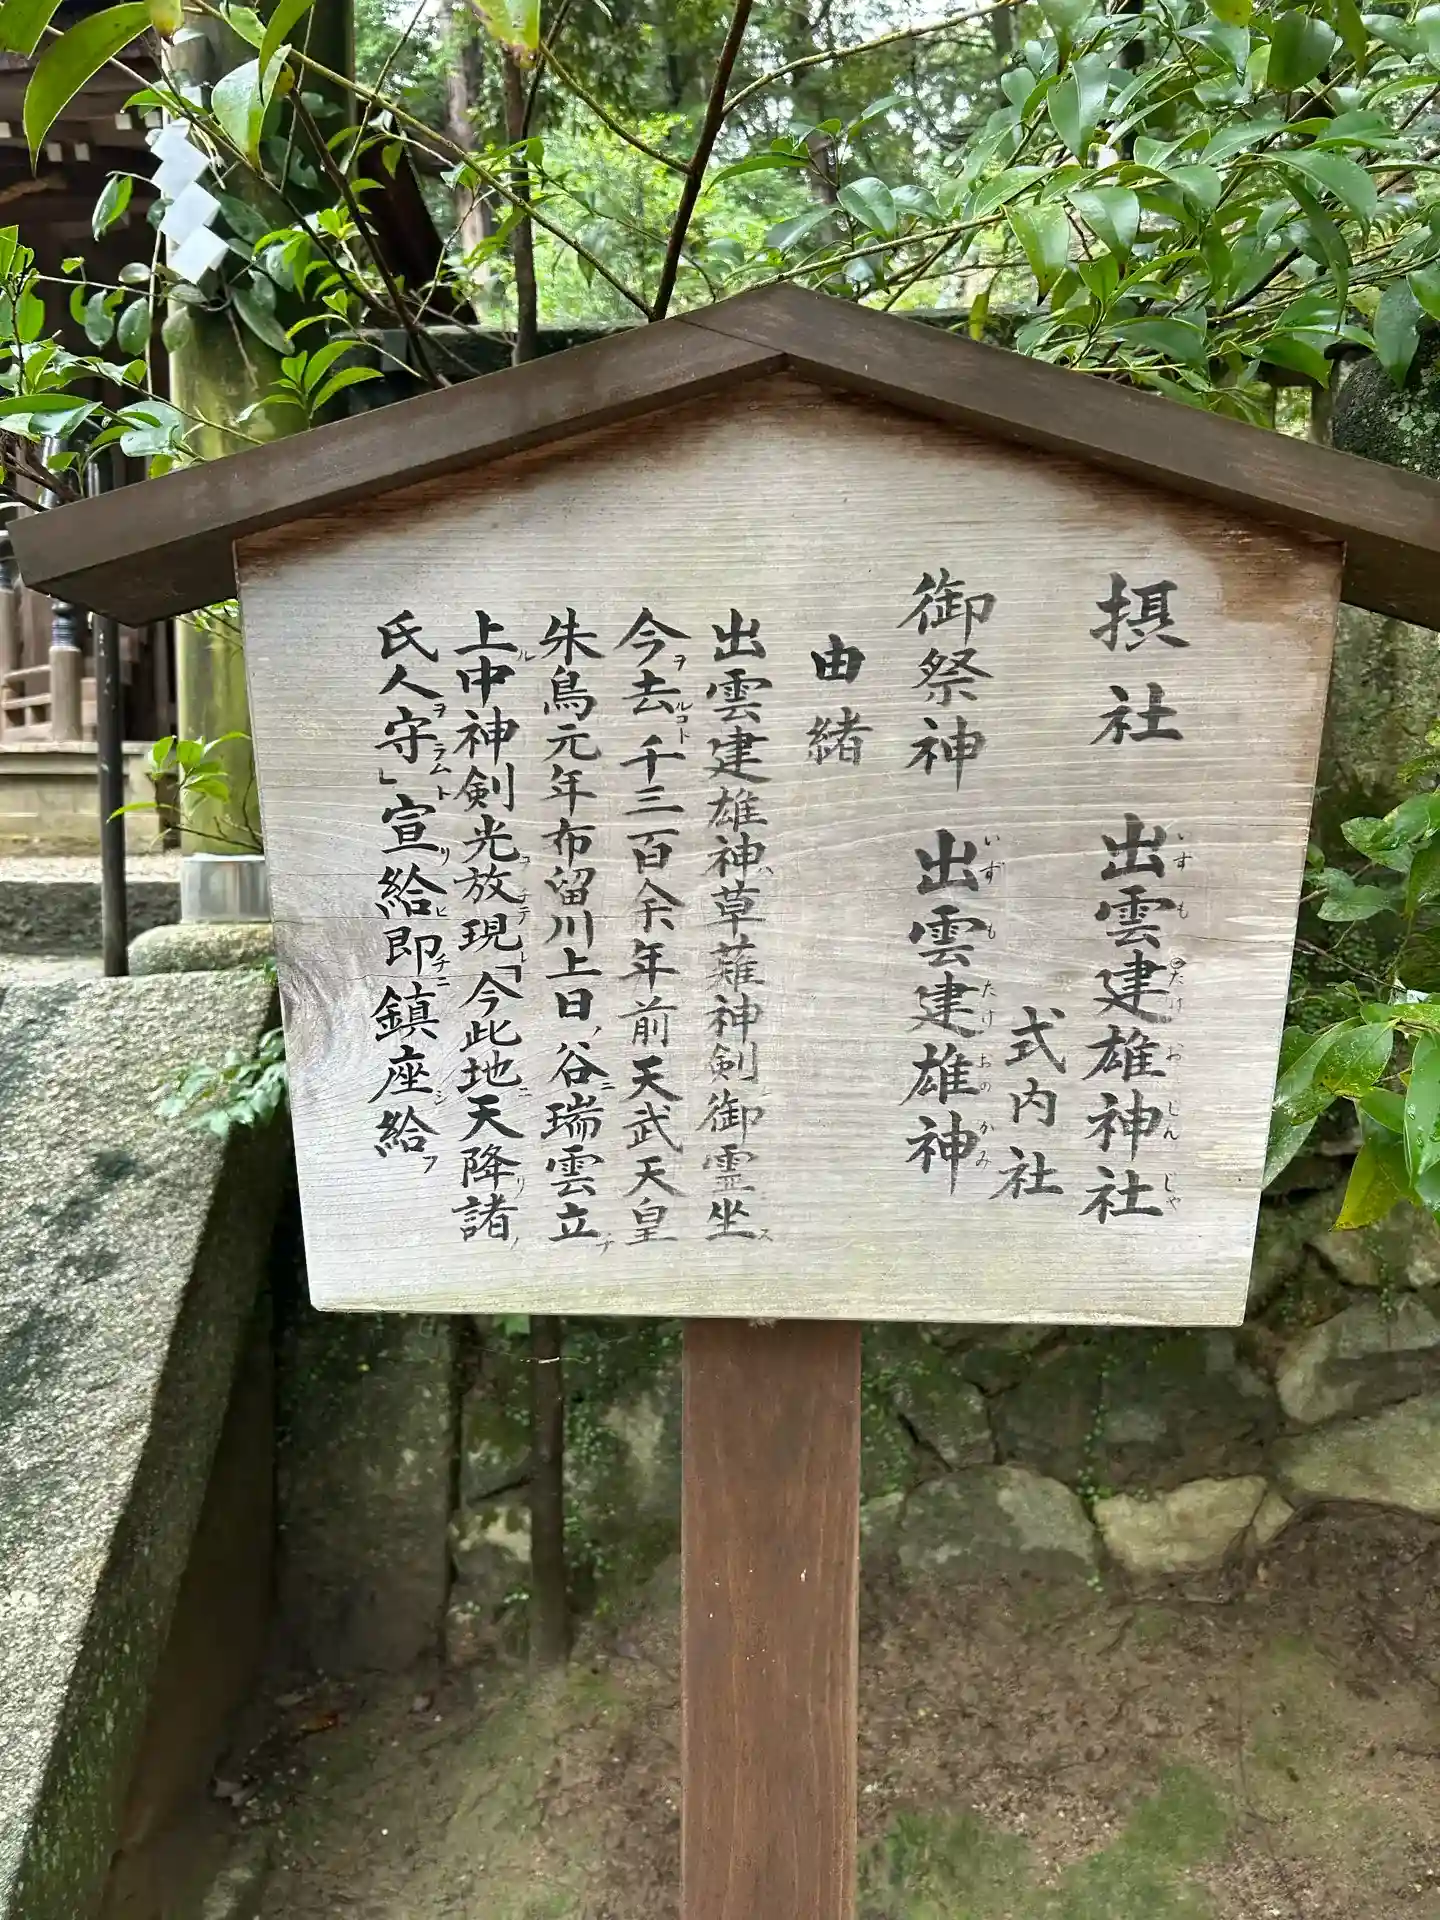 摂社 出雲建雄神社
いずものたけおじんじゃ
式内社
御祭神 出雲建雄神
いずもたけおのかみ
由緒
出雲建雄神ハ草薙神剣ノ御霊坐ス
今ヲ去ルコト千三百余年前天武天皇
朱鳥元年布留川上日ノ谷ニ瑞雲立チ
上ル中神剣光ヲ放チテ現レ「今此地ニ天降リ諸ノ
氏人ヲ守ラムト」宣リ給ヒ即チニ鎮座シ給フ